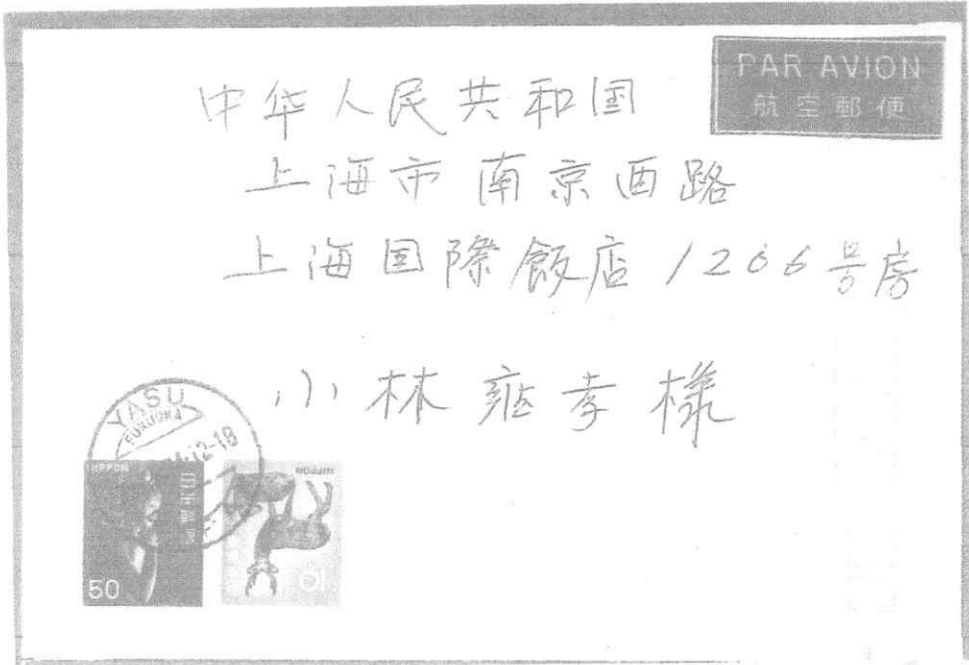 PAR AVION
航空郵便
中华人民共和国
上海市南京西路
上海国際飯店1206号房
小林 孝様
YASU
FUKUOKA
12-18
NIPPON
日本郵便
50
NIPPON
10